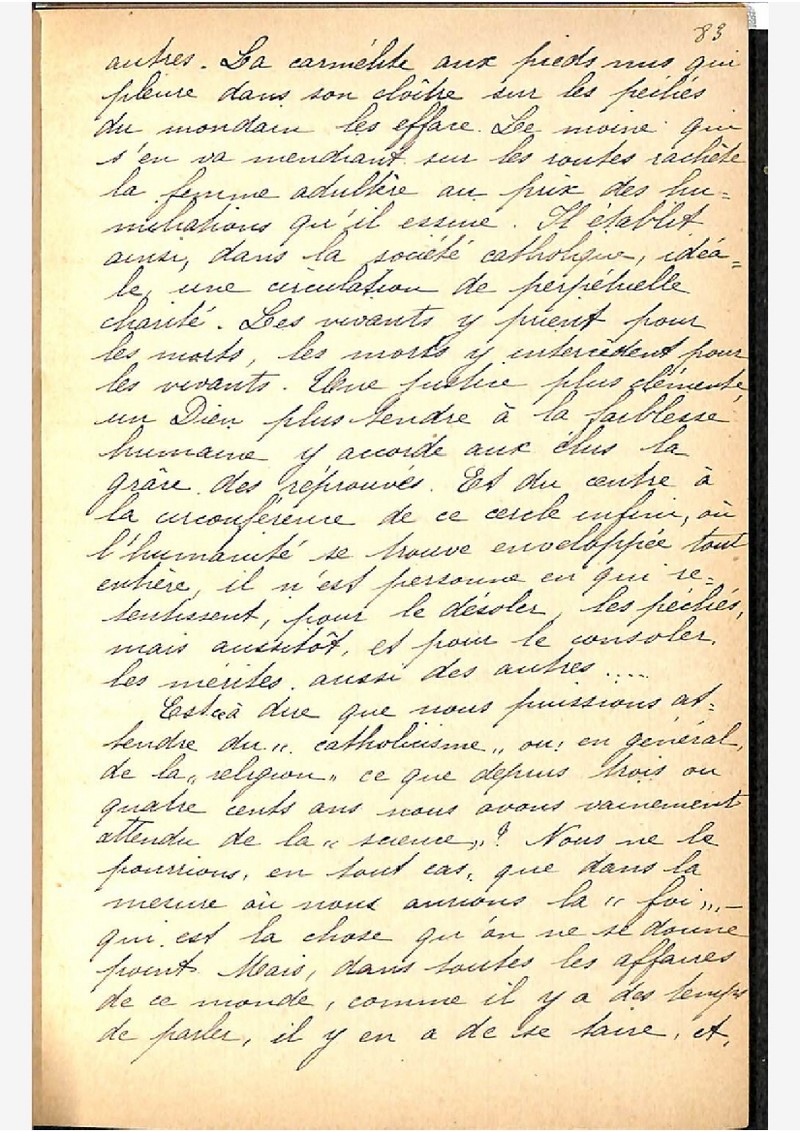 83
autres. La carmélite aux pieds nus qui
pleure dans son cloître sur les péchés
du mondain les efface. Le moine qui
s'en va mendiant sur les routes rachète
la femme adultère au prix des hu=
miliations qu'il essuie. Il établit
ainsi, dans la société catholique, idéa=
le, une circulation de perpétuelle
charité. Les vivants y prient pour
les morts, les morts y intercèdent pour
les vivants. Une justice plus clémente,
un Dieu plus tendre à la faiblesse
humaine y accorde aux élus la
grâce des réprouvés. Et du centre à
la circonférence de ce cercle infini, où
l'humanité se trouve enveloppée tout
entière, il n'est personne en qui re=
tentissent, pour le désoler, les péchés,
mais aussitôt, et pour le consoler,
les mérites aussi des autres.....
Est-ce à dire que nous puissions at=
tendre du « catholicisme » ou, en général,
de la « religion » ce que depuis trois ou
quatre cents ans nous avons vainement
attendu de la « science »? Nous ne le
pourrions, en tout cas, que dans la
mesure où nous aurions la « foi », —
qui est la chose qu'on ne se donne
point. Mais, dans toutes les affaires
de ce monde, comme il y a des temps
de parler, il y en a de se taire, et,